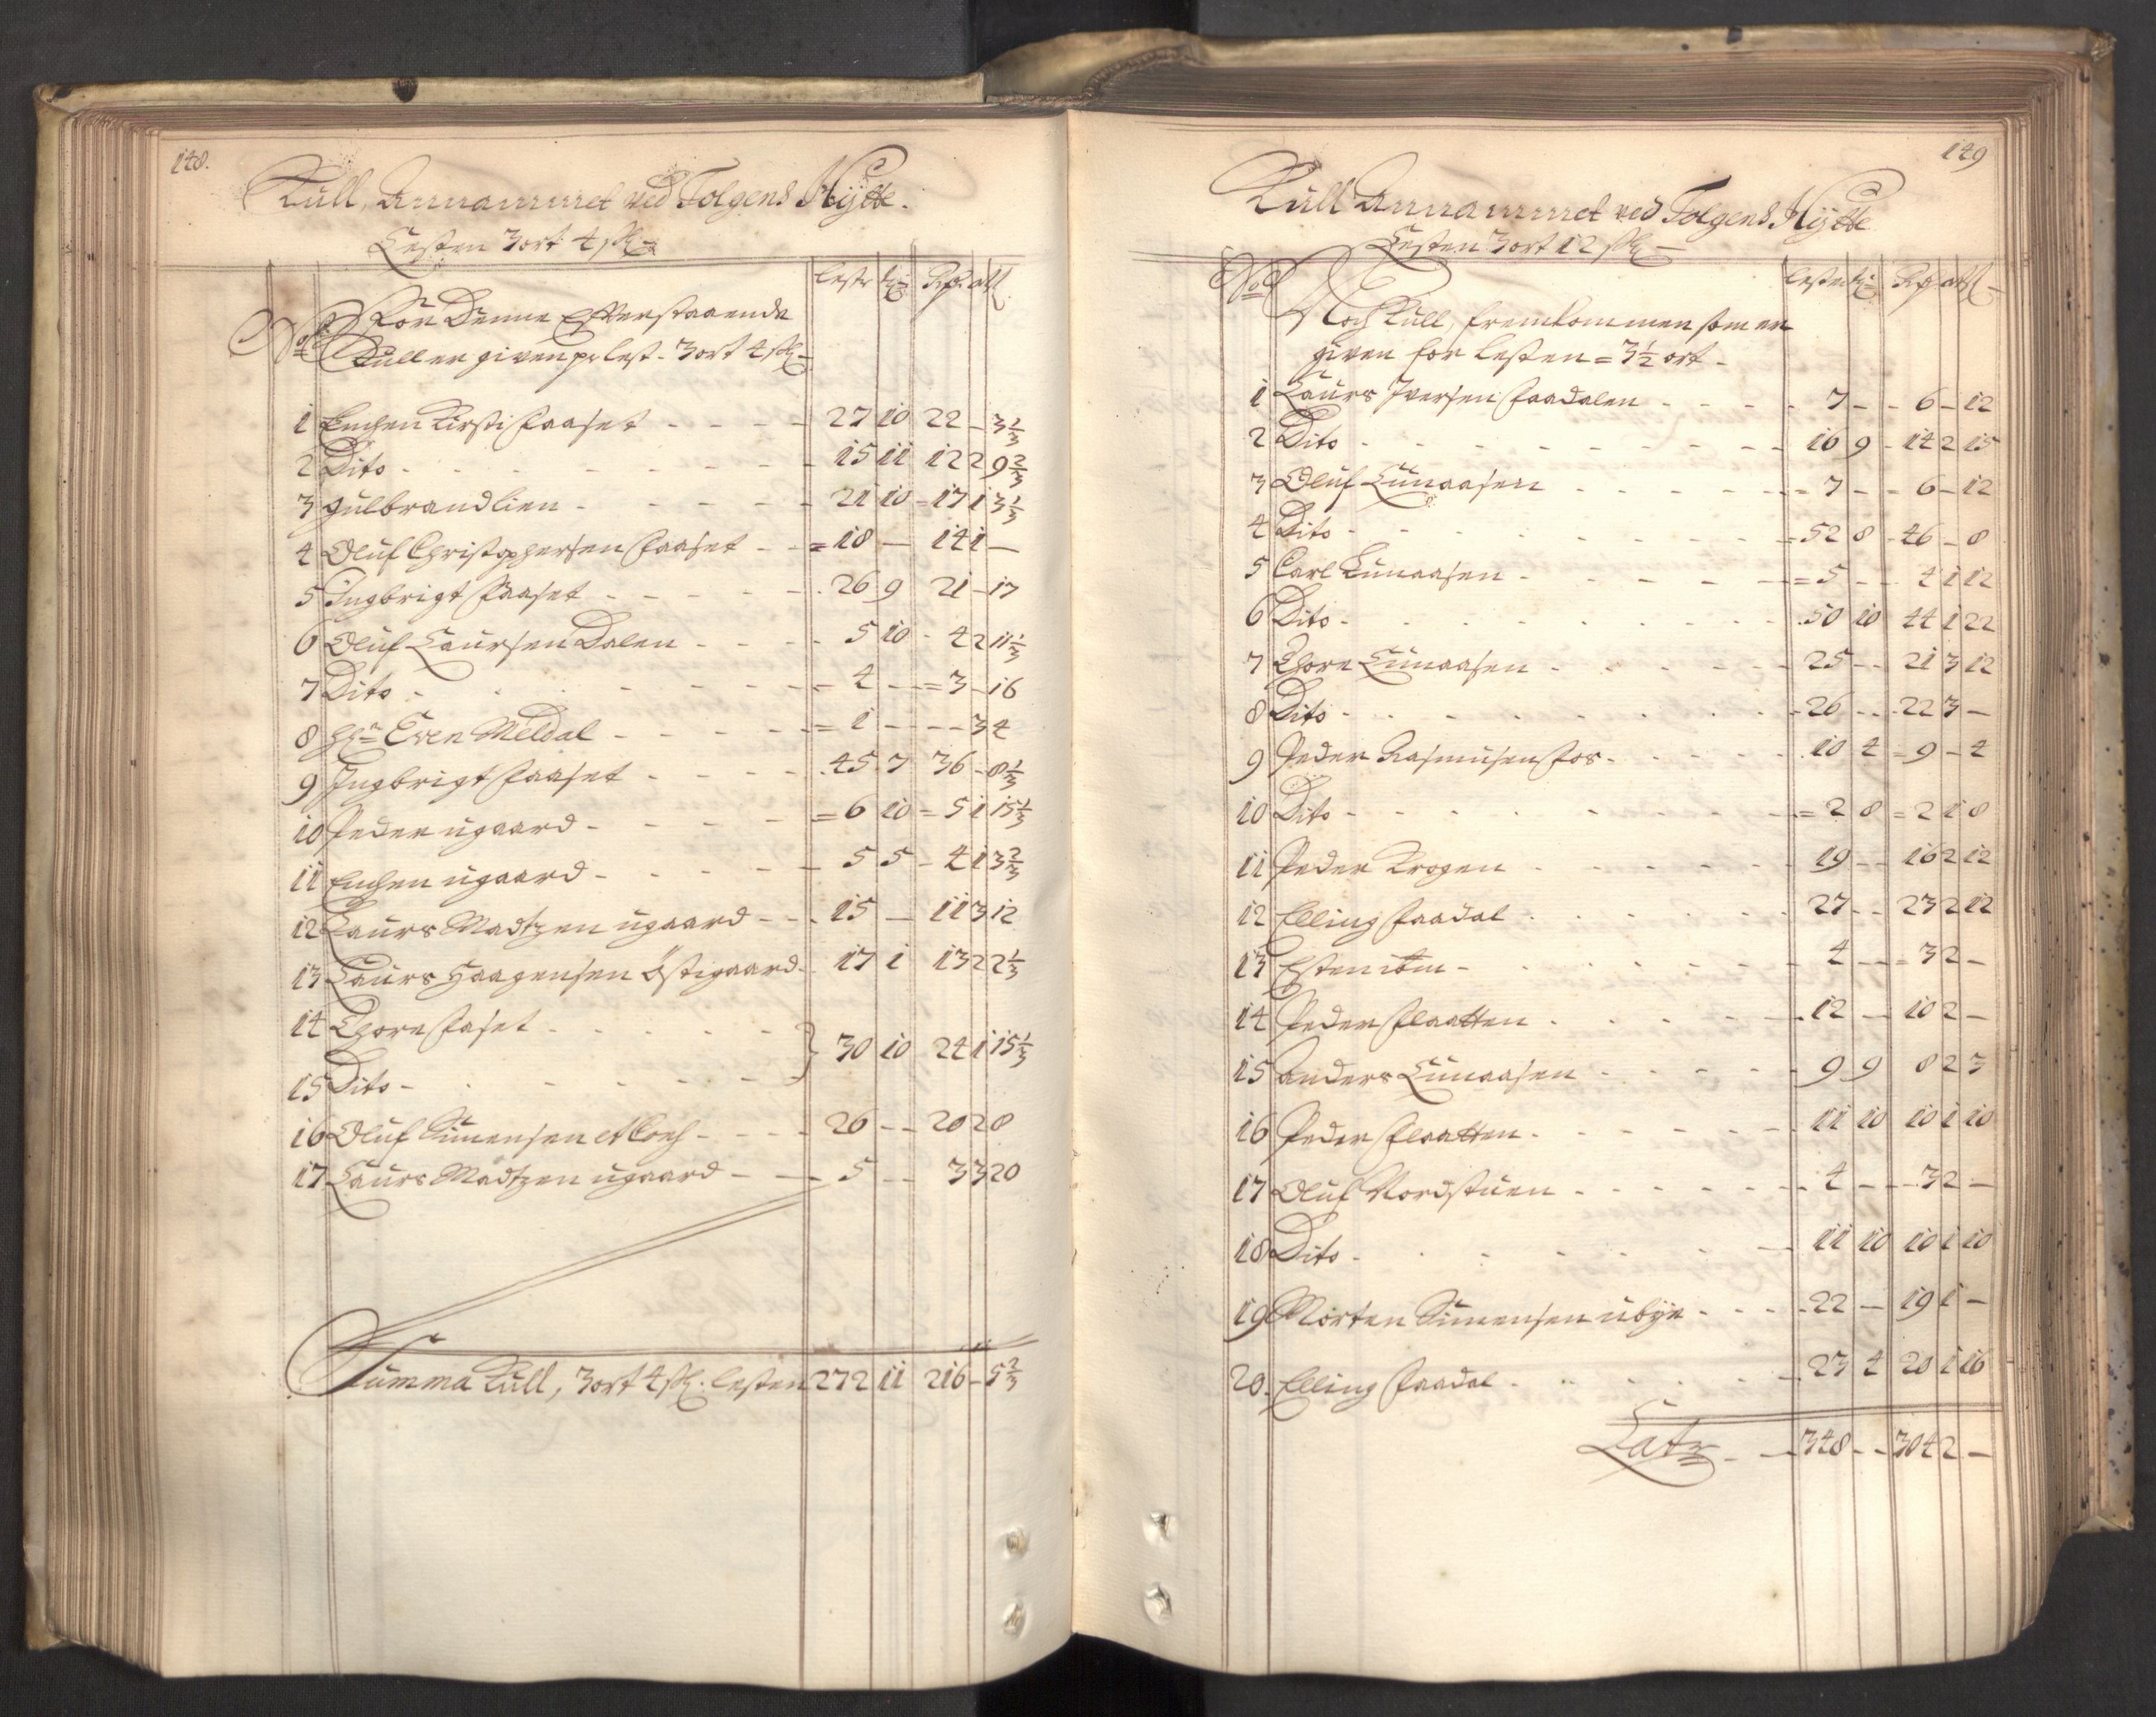 148.
Kull, Annammet ved Tolgens Hytte.
Lesten 3 ort 4 sk
lestr tr Rdr ort sk
No For Denne Efterstaaende
Kull er given pr lest - 3 ort 4 sk -
1 Enchen Kirsti Faaset - - - - 27 10 22 - 3 1/3
2 Dito - - - - - 15 11 12 2 9 2/3
3 Gulbrand lien - - - - - 21 10 - 17 1 3 1/3
4 Oluf Christophersen Faaset - - = 18 - 14 1 -
5 Ingbrigt Faaset - - - - - 26 9 21 - 17
6 Oluf Laursen Dalen - - - - 5 10 - 4 2 11 1/3
7 Dito - - - - - = 4 - = 3 - 16
8 Hr Even Meldal - - - - = 1 - - - 3 4
9 Ingbrigt Faaset - - - - 45 7 36 - 8 1/3
10 Peder ugaard - - - - = 6 10 = 5 1 15 1/3
11 Enchen ugaard - - - - - 5 5 - 4 1 3 2/3
12 Laurs Madtzen ugaard - - - 15 - 11 3 12
13 Laurs Haagensen Östigaard - 17 1 13 2 2 1/3
14 Thore Faset - - - - - } 30 10 24 1 15 1/3
15 Dito - - - - -
16 Oluf Simensen - - - - 26 - - 20 2 8
17 Laurs Madtzen ugaard - - - 5 - - 3 3 20
Summa Kull, 3 ort 4 sk. lesten 272 11 216 - 5 2/3
149
Kull Annammet ved Tolgens Hytte
Lesten 3 ort 12 sk -
No lester tr Rdr ort sk -
Noch Kull, fremkommen som er
given for lesten = 3 1/2 ort -
1 Laurs Iversen Faadalen - - - - 7 - - 6 - 12
2 Dito - - - - - 16 9 - 14 2 15
3 Oluf Lunaasen - - - - - = 7 - = 6 - 12
4 Dito - - - - - 52 8 - 46 - 8
5 Carl Lunaasen - - - - = 5 - - 4 1 12
6 Dito - - - - - 50 10 44 1 22
7 Thore Lunaasen - - - - - 25 - - 21 3 12
8 Dito - - - - - 26 - - 22 3 -
9 Peder Rasmusen Fos - - - - - 10 4 = 9 - 4
10 Dito - - - - - = 2 8 = 2 1 8
11 Peder Krogen - - - - - 19 - - 16 2 12
12 Elling Faadal - - - - - 27 - - 23 2 12
13 Esten ibm - - - - - 4 - = 3 2 -
14 Peder Flaatten - - - - - 12 - 10 2 -
15 Anders Lunaasen - - - - - 9 9 8 2 3
16 Peder Flaatten - - - - - 11 10 10 1 10
17 Oluf Nordstuen - - - - - 4 - - 3 2 -
18 Dito - - - - - 11 10 10 1 10
19 Morten Simensen ubye - - - - 22 - 19 1 -
20. Elling Faadal - - - - - 23 4 20 1 16
Latr - - 348 - - 304 2 -